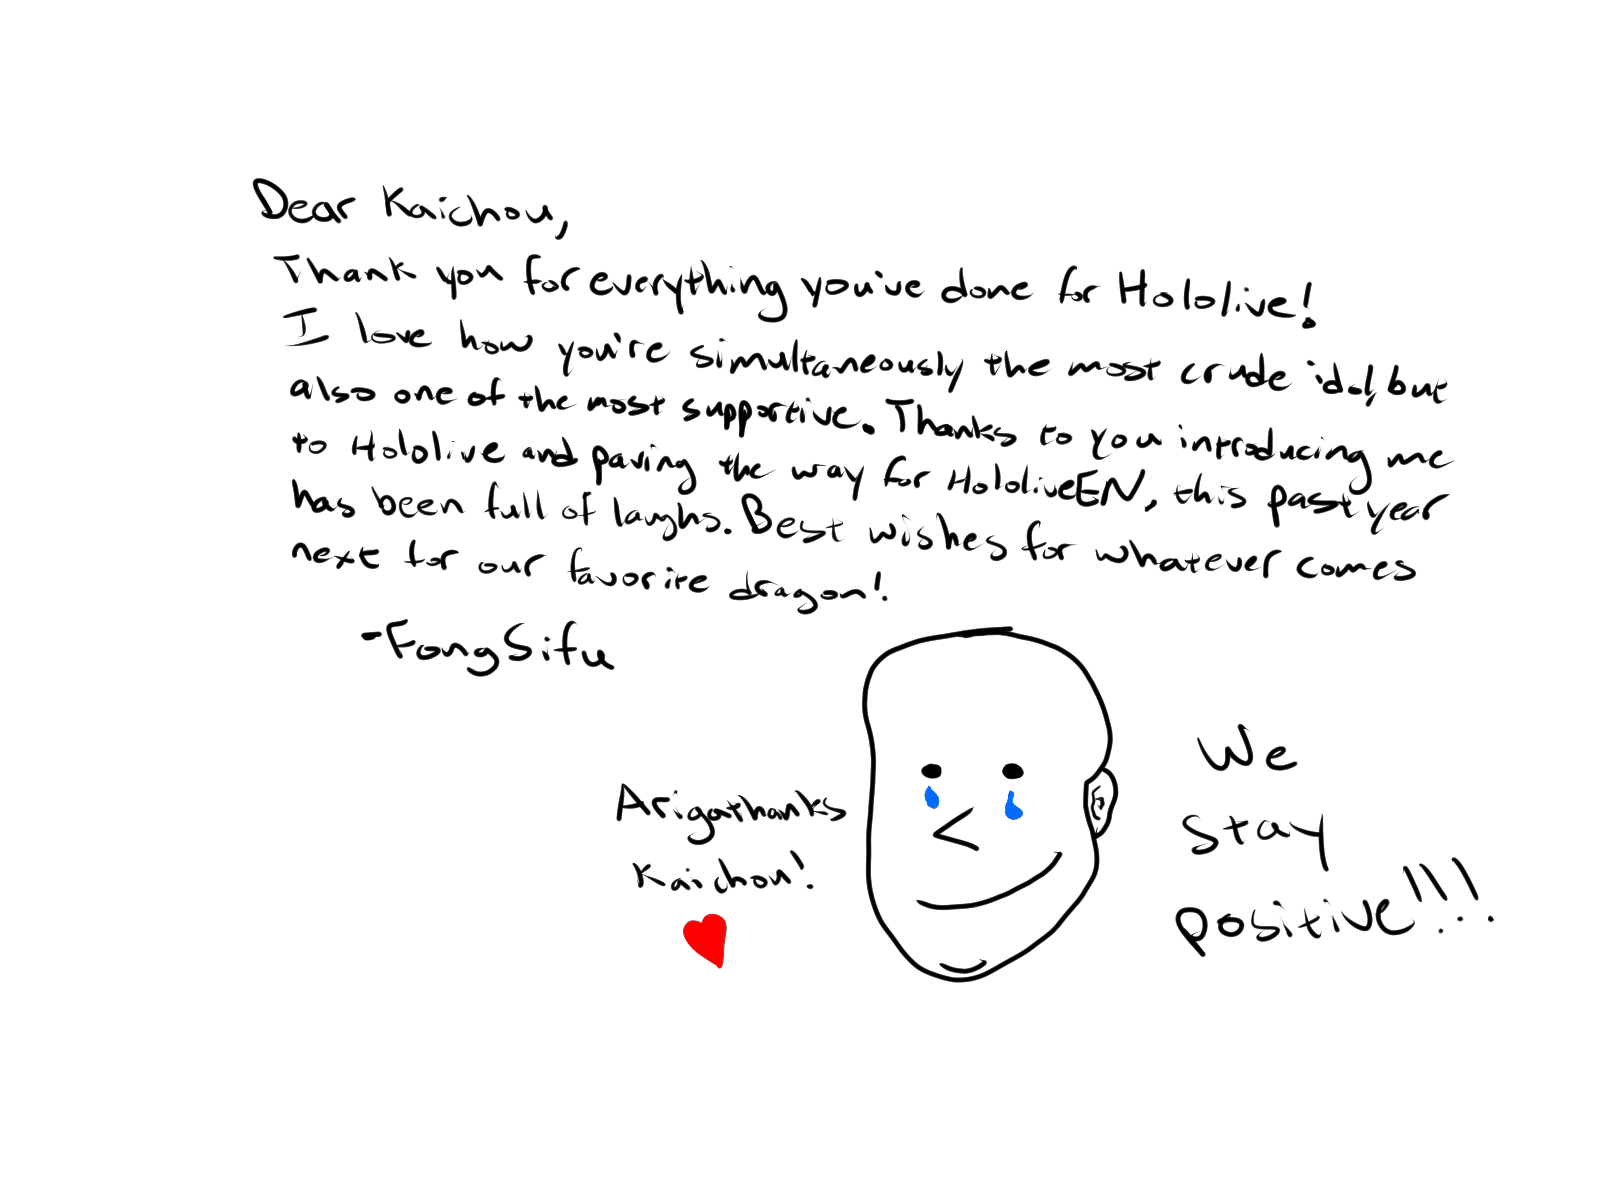 Dear Kaichou,
Thank you for everything you've done for Hololive!
I love how you're simultaneously the most crude idol, but
also one of the most supportive. Thanks to you introducing me
to Hololive and paving the way for HololiveEN, this past year
has been full of laughs. Best wishes for whatever comes
next for our favorite dragon!
-FongSifu
Arigathanks
Kaichou!
We
stay
positive!!!